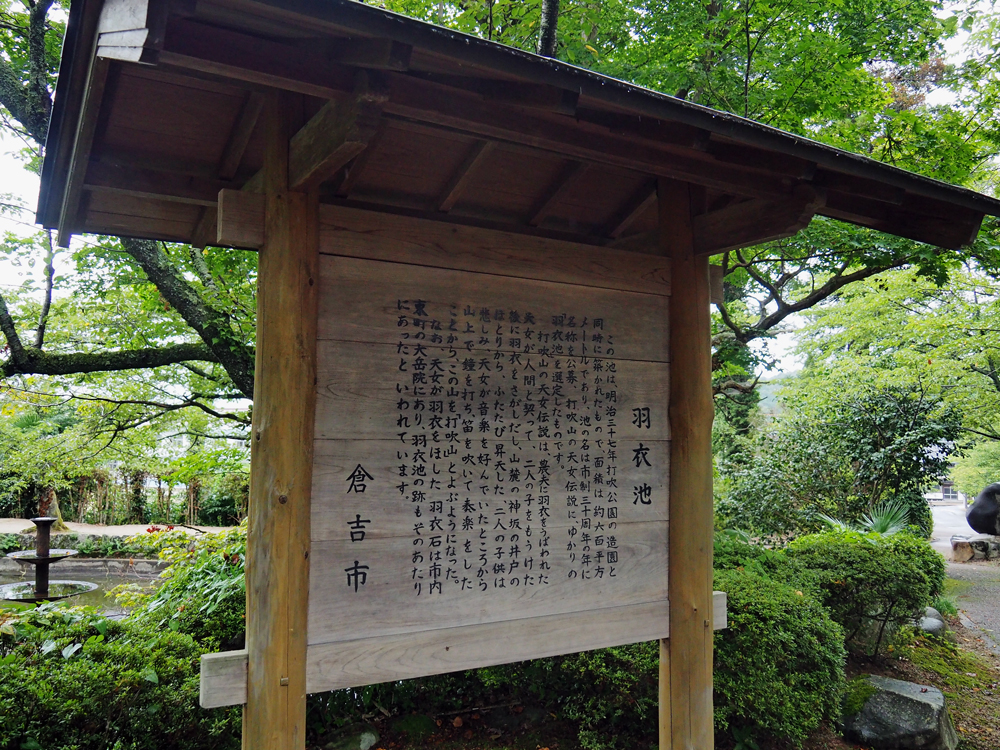 羽衣池
この池は、明治三十七年打吹公園の造園と
同時に築かれたもので面積は約六百平方
メートルであり、池の名は市制三十周年の年に
名称を公募、打吹山の天女伝説に、ゆかりの
「羽衣池」を選定したものです。
打吹山の天女伝説は、農夫に羽衣をうばわれた
天女が人間と契って、二人の子をもうけた
後に羽衣をさがしだし、山麓の神坂の井戸の
ほとりから、ふたたび昇天した。二人の子供は
悲しみ、天女が音楽を好んでいたところから
山上で鐘を打ち、笛を吹いて奏楽をした
ことから、この山を打吹山とよぶようになった。
なお、天女が羽衣をほした、羽衣石は市内
東町の大岳院にあり、羽衣池の跡もそのあたり
にあったといわれています。
倉吉市